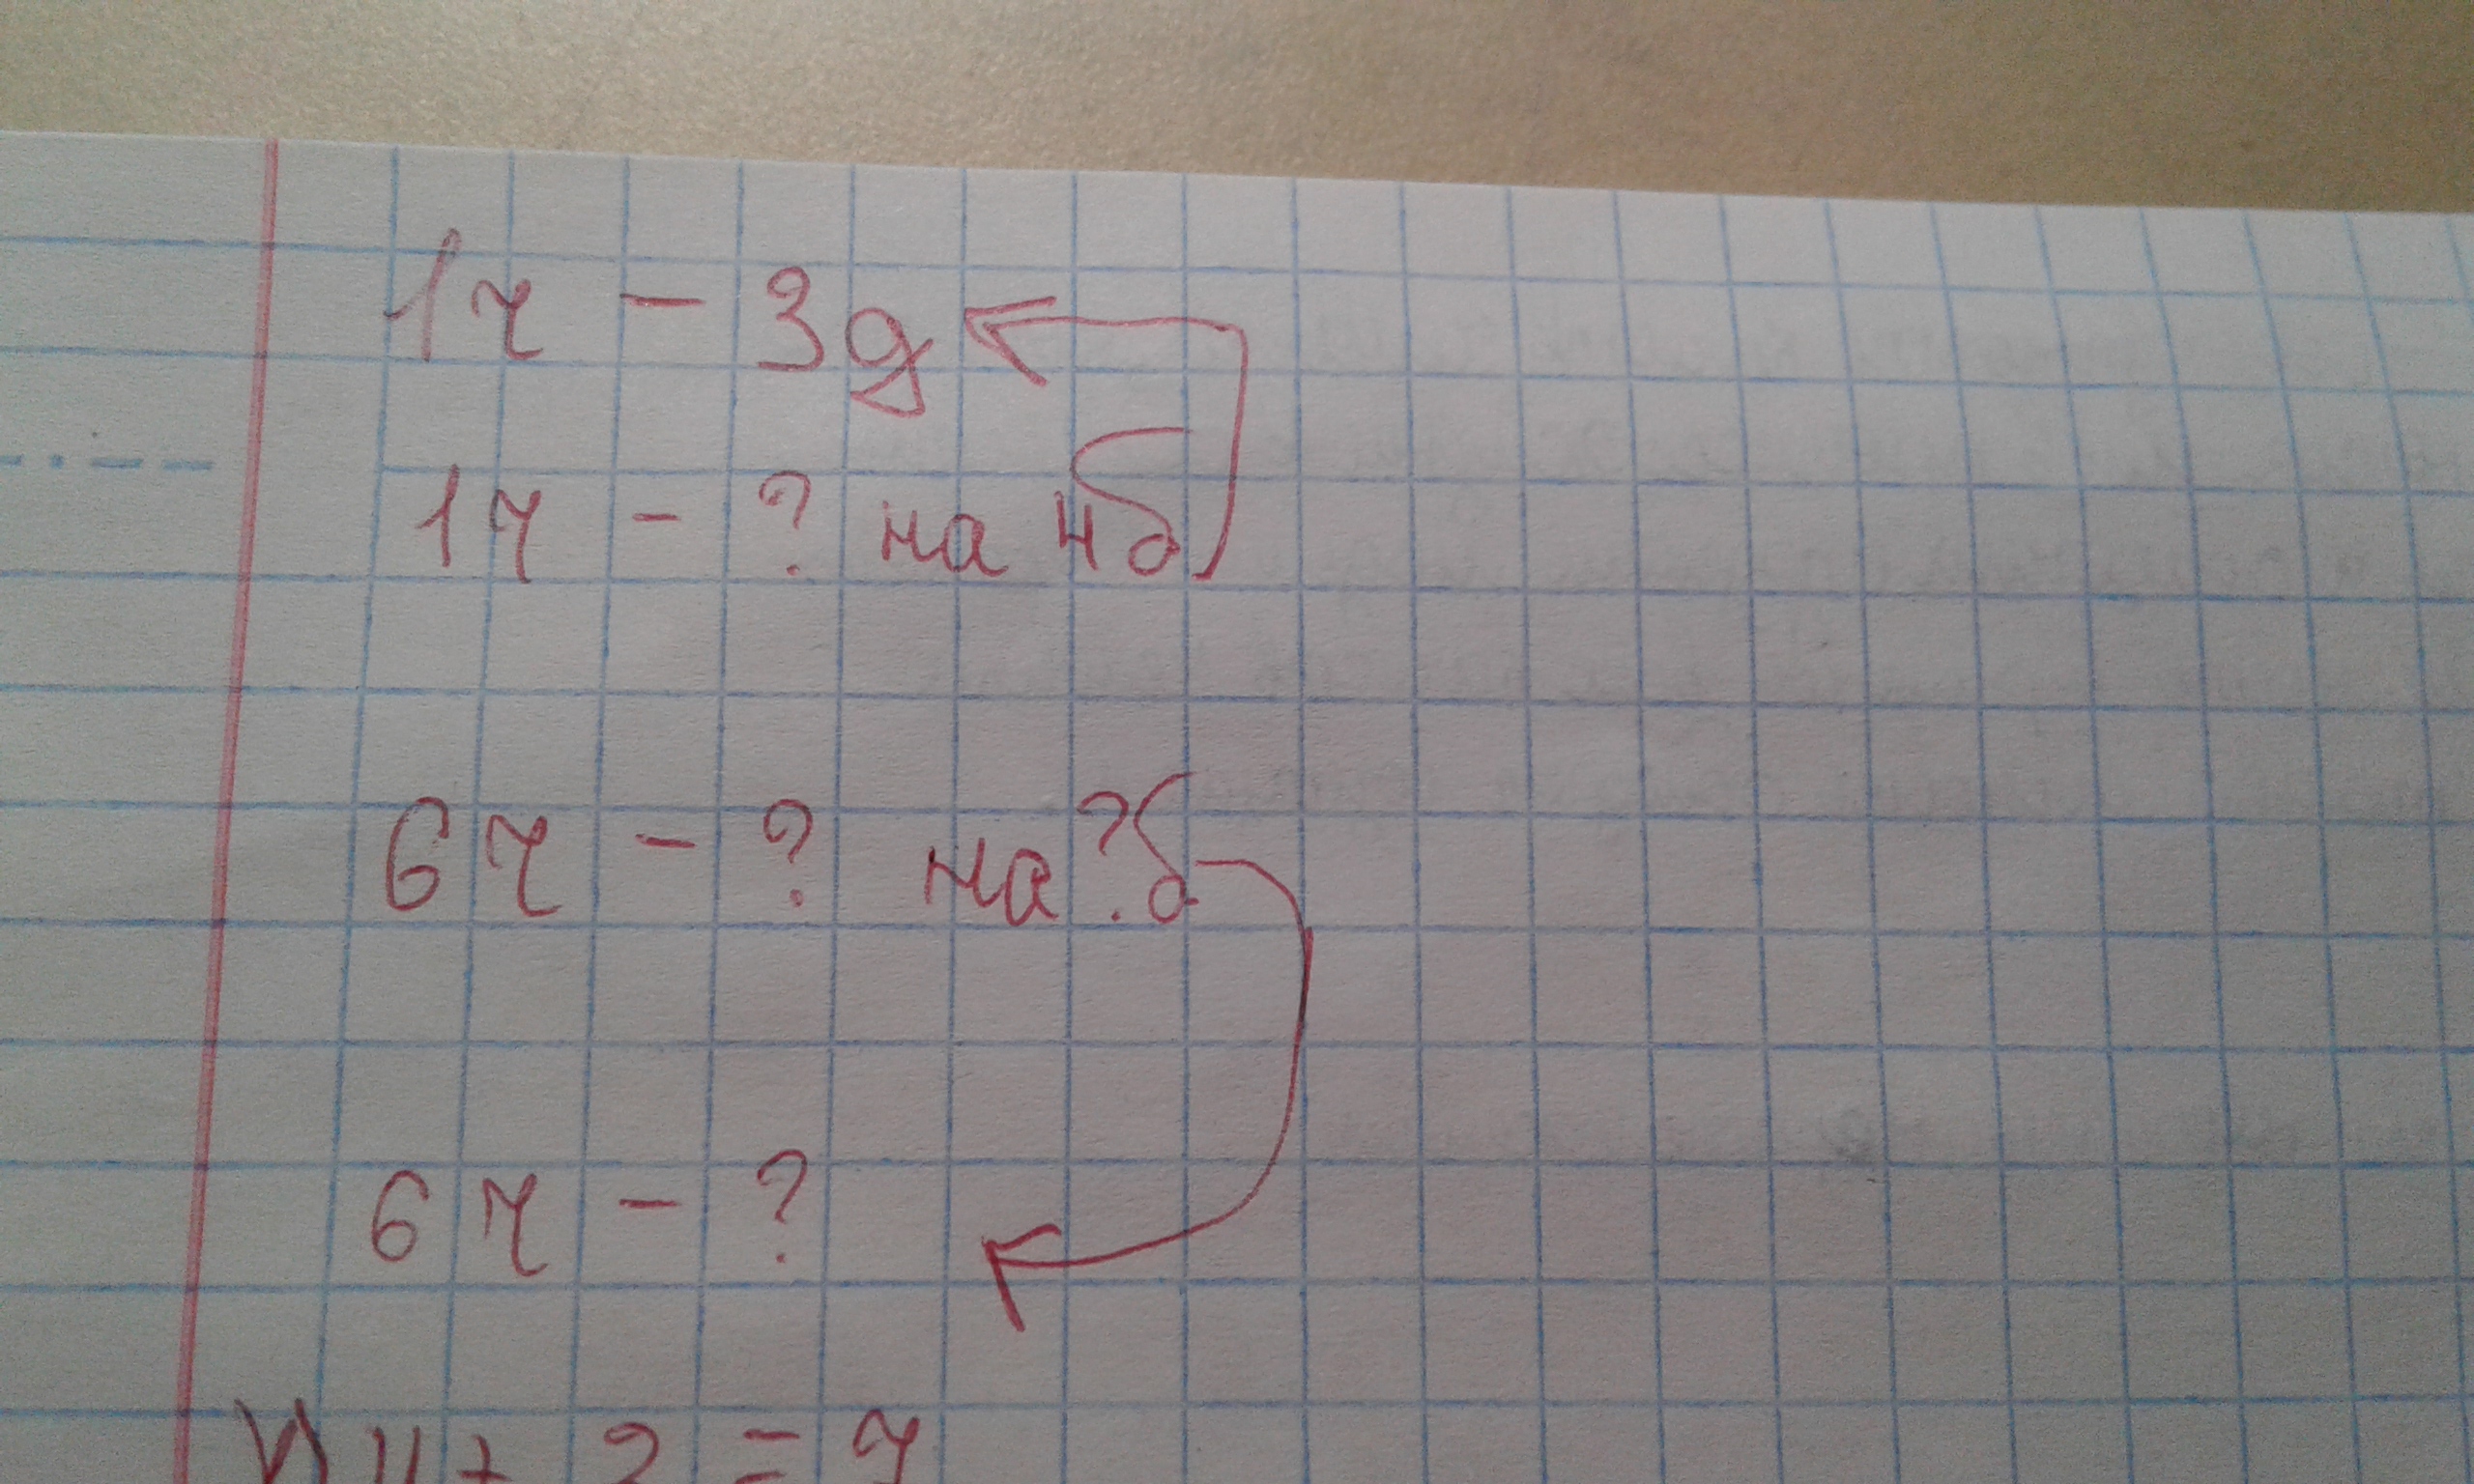 1ч - 3д
1ч - ? на 4б
6ч - ? на ? б
6ч - ?
1) 4 + 3 = 7